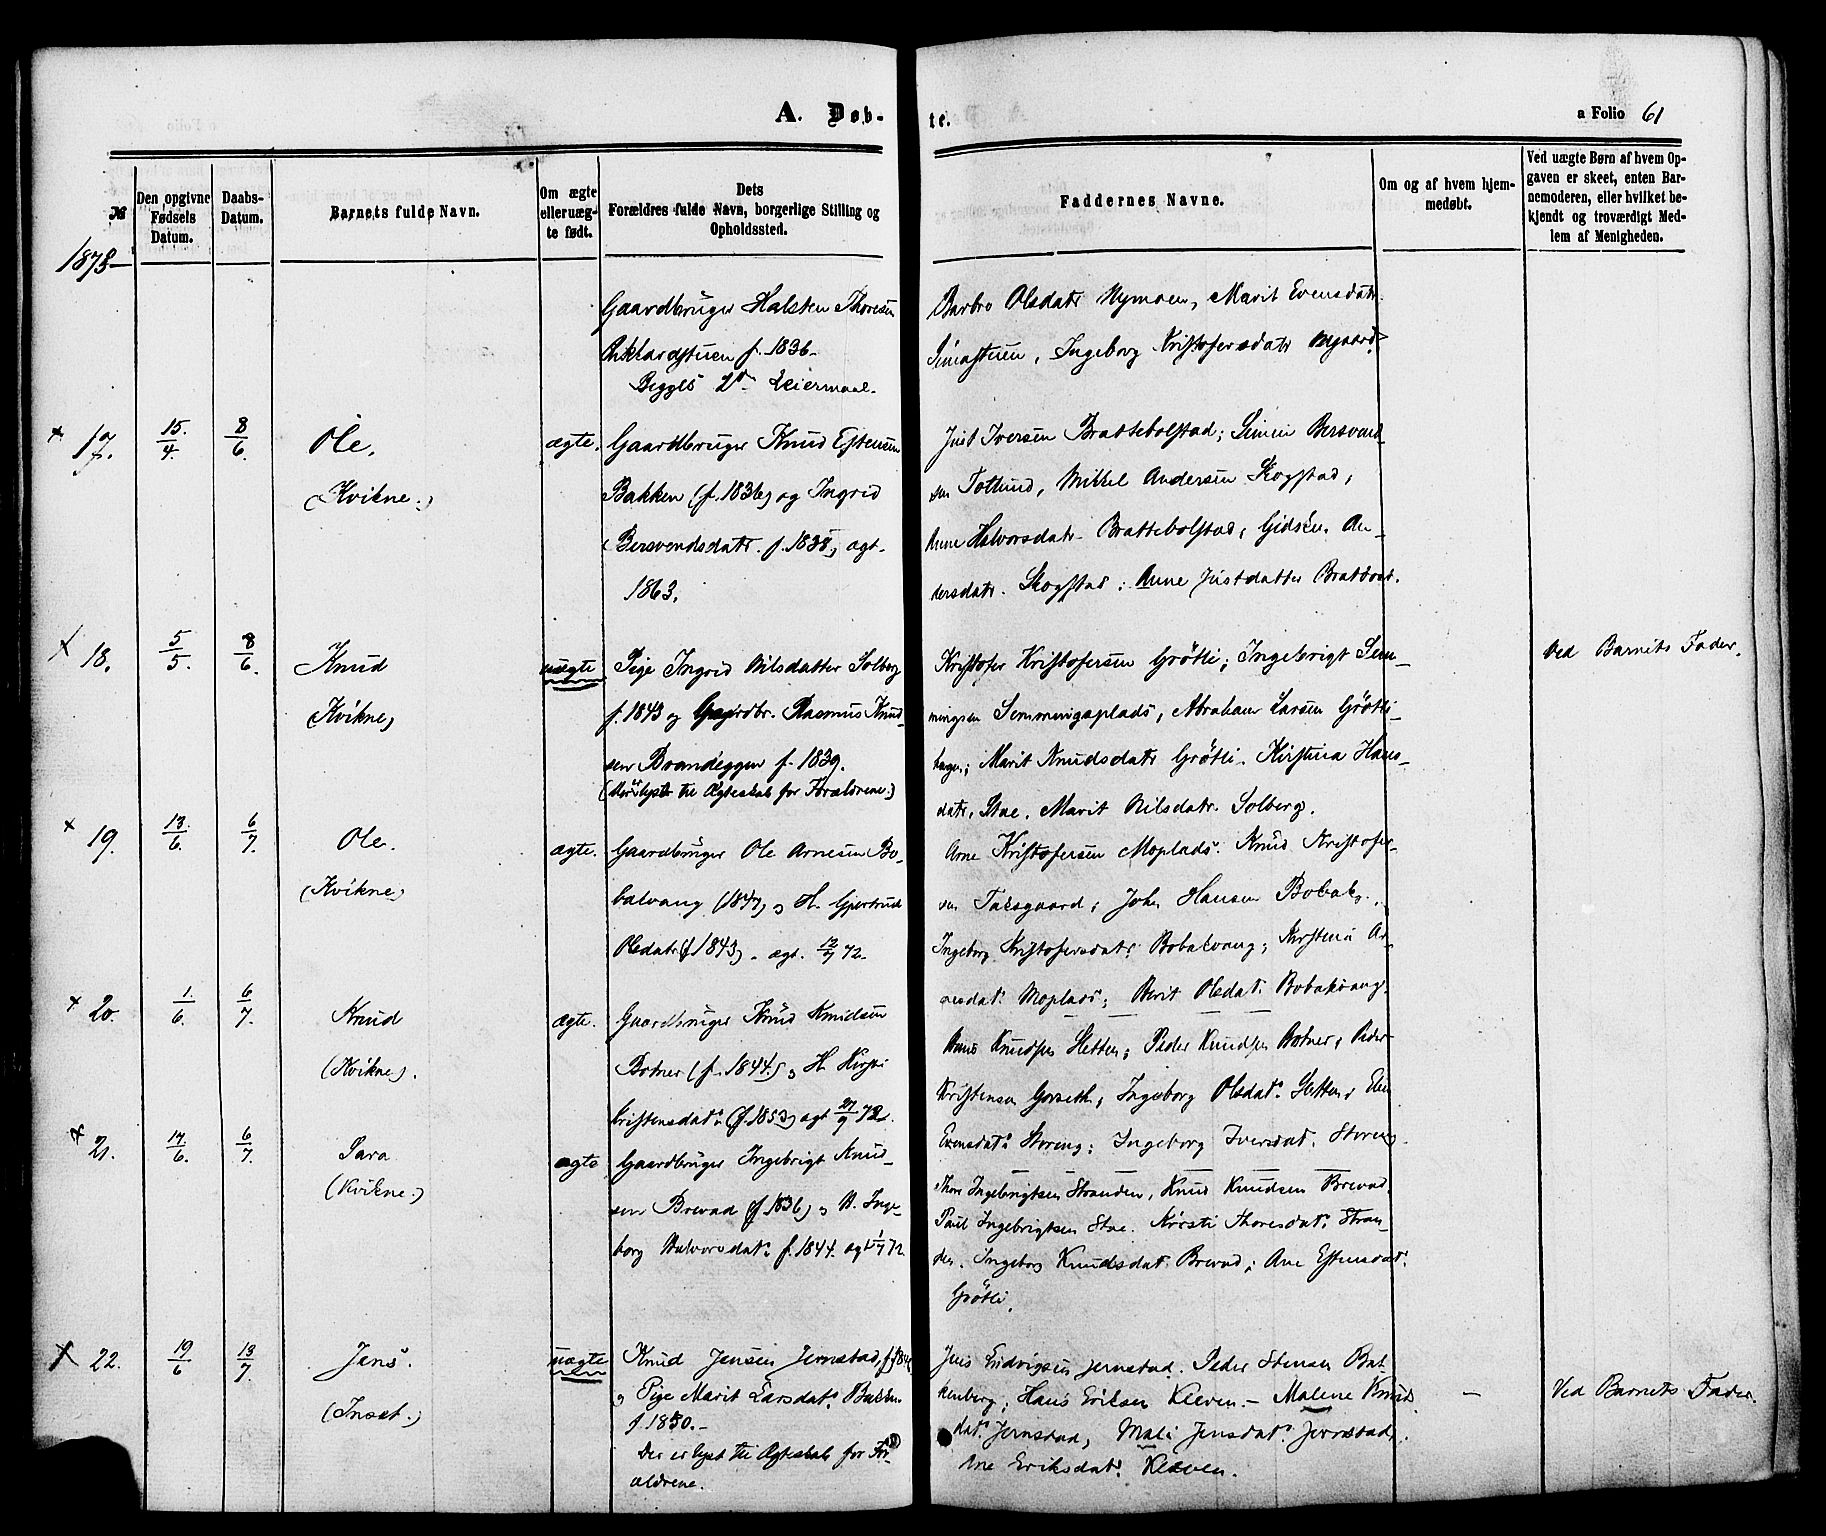 A. Døb-
te.
a Folio 61
№
Den opgivne Fødsels Datum.
Daabs-Datum.
Barnets fulde Navn.
Om ægte eller uæg-te født.
Dets Forældres fulde Navn, borgerlige Stilling og Opholdssted.
Faddernes Navne.
Om og af hvem hjem-medøbt.
Ved uægte Børn af hvem Op-gaven er skeet, enten Bar-nemoderen, eller hvilket be-kjendt og troværdigt Med-lem af Menigheden.
1878
Gaardbruger Halsten Thoresen
f. 1836.
Begges 2d Leiermaal.
Barbro Olsdatr Nymoen, Marit Evensdatr.
Simastuen, Ingeborg Kristofersdatr
17. 15/4. 8/6. Ole. ægte.
(Kvikne.)
Gaardbruger Knud Estensen
Bakken (f. 1836) og Ingrid
Bersvendsdatr. f. 1838, ægt.
1863.
Just Iversen Brattebolstad; Simen Bersvend-
sen Totlund, Mikkel Andersen Skogstad,
Anne Halvorsdatr Brattebolstad, An-
dersdatr. Skogstad; Anne Justdatter
18. 5/5. 8/6. Knud uægte
(Kvikne)
Pige Ingrid Nilsdatter Solberg
f. 1843 og Gaardbr. Rasmus Knud-
sen Brandeggen f. 1839.
(Der er lyst til Ægteskab for Forældrene.)
Kristofer Kristofersen Grøtli; Ingebrigt Sem-
mingsen Semmingsplads, Abraham Larsen Grøtli-
hagen; Marit Knudsdatr Grøtli. Kirstina Hans-
datr. Stae. Marit Nilsdatr. Solberg.
Ved Barnets Fader.
19. 13/6. 6/7. Ole. ægte.
(Kvikne)
Gaardbruger Ole Arnesen Bo-
balvang (1847) og H. Gjertrud
Olsdatr (f. 1843). ægt. 12/7 72.
Arne Kristofersen Moplads. Knud Kristofer-
sen ; John Hansen Bobak.,
Ingeborg Kristofersdatr. Bobakvang; Kirstina Ar-
nesdatr. Moplads; Berit Olsdatr. Bobakvang.
20. 1/6. 6/7. Knud ægte.
(Kvikne).
Gaardbruger Knud Knudsen
Botner (f. 1844.) og H. Kirsti
Cristensdatr. (f. 1853) ægt 27/9 72.
Hans Knudsen Sletten; Peder Knudsen Botner, Peder
Kristensen Gorseth, Ingeborg Olsdatr. Sletten,
Evensdatr. Storeng; Ingeborg Iversdatr. Storeng.
21. 14/6. 6/7. Sara ægte
(Kvikne.)
Gaardbruger Ingebrigt Knud-
sen Brevad (f. 1836) og H. Inge-
borg Halvorsdatr. f. 1844. ægt 1/7 72.
Thore Ingebrigtsen Stranden, Knud Knudsen Brevad.
Paul Ingebrigtsen Stae. Kirsti Thoresdatr. Stran-
den. Ingeborg Knudsdatr. Brevad; Ane Estensdatr.
Grøtli.
22. 19/6 13/7. Jens. uægte
(Inset.)
Knud Jensen Jernstad,
og Pige Marit Larsdatr. Bakken
f. 1850.-
Der er lyst til Ægteskab for For-
ældrene.
Jens Ludvigsen Jernstad. Peder Stensen Bak
kenberg; Hans Eriksen Kleven. - Malene Knud
datr. Jernstad, Mali Jensdatr. Jernstad,
Ane Eriksdatr. Kleven.
-
Ved Barnets Fader.